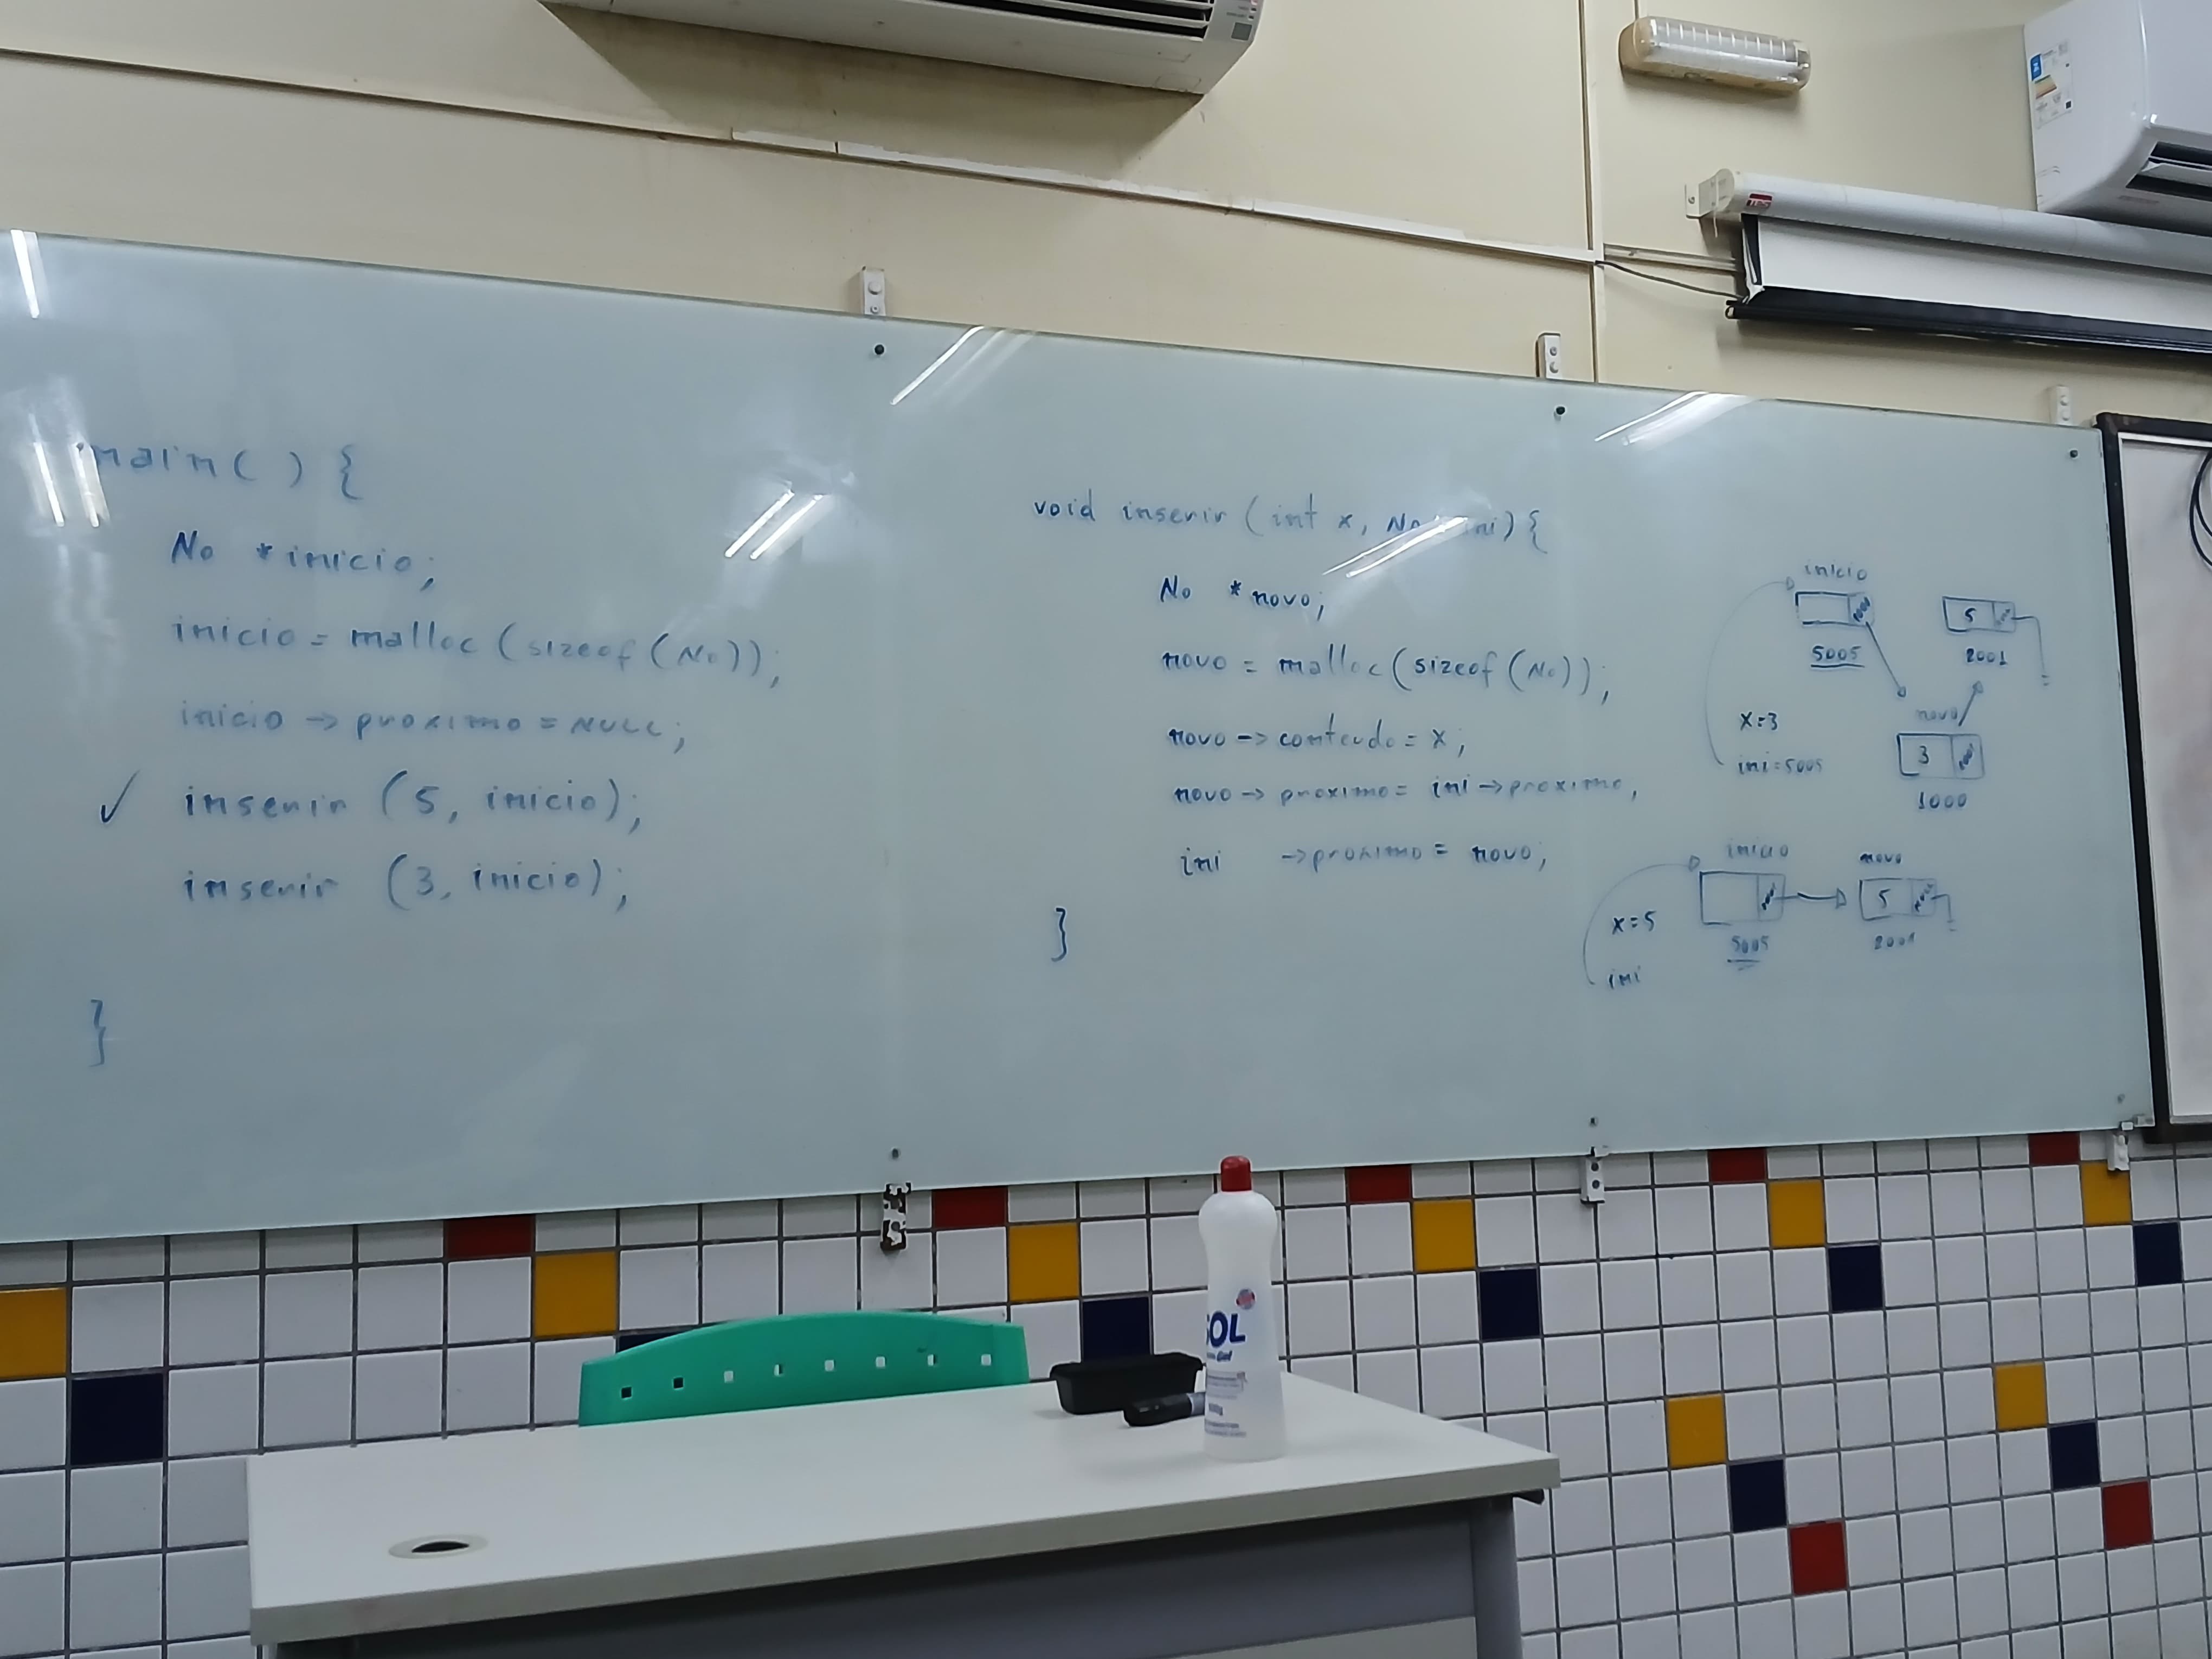 main( ) {
No *inicio;
inicio = malloc (sizeof (No));
inicio -> proximo = NULL;
✓ inserir (5, inicio);
inserir (3, inicio);
}
void inserir (int x, No *ini) {
No *novo;
novo = malloc (sizeof (No));
novo -> conteudo = x;
novo -> proximo = ini -> proximo;
ini -> proximo = novo;
}
inicio
5
5005
2001
x=3
novo
ini=5005
3
1000
inicio
novo
x=5
5
5005
2001
ini
SOL